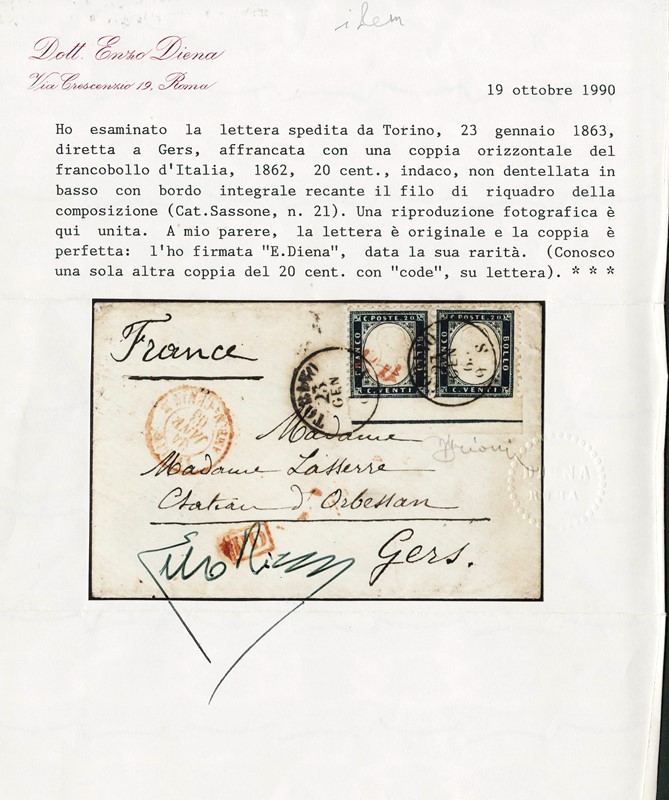 idem
Dott. Enzo Diena
Via Crescenzio 19, Roma
19 ottobre 1990
Ho esaminato la lettera spedita da Torino, 23 gennaio 1863,
diretta a Gers, affrancata con una coppia orizzontale del
francobollo d'Italia, 1862, 20 cent., indaco, non dentellata in
basso con bordo integrale recante il filo di riquadro della
composizione (Cat.Sassone, n. 21). Una riproduzione fotografica è
qui unita. A mio parere, la lettera è originale e la coppia è
perfetta: l'ho firmata "E.Diena", data la sua rarità. (Conosco
una sola altra coppia del 20 cent. con "code", su lettera). * * *
France
C. POSTE. 20 C. POSTE. 20
FRANCO BOLLO FRANCO BOLLO
C. VENTI C. VENTI
TORINO
23
GEN
GEN
Madame
Madame Lasserre
Chateau d'Orbessan
Gers.
DIENA
ROMA
Enzo Diena